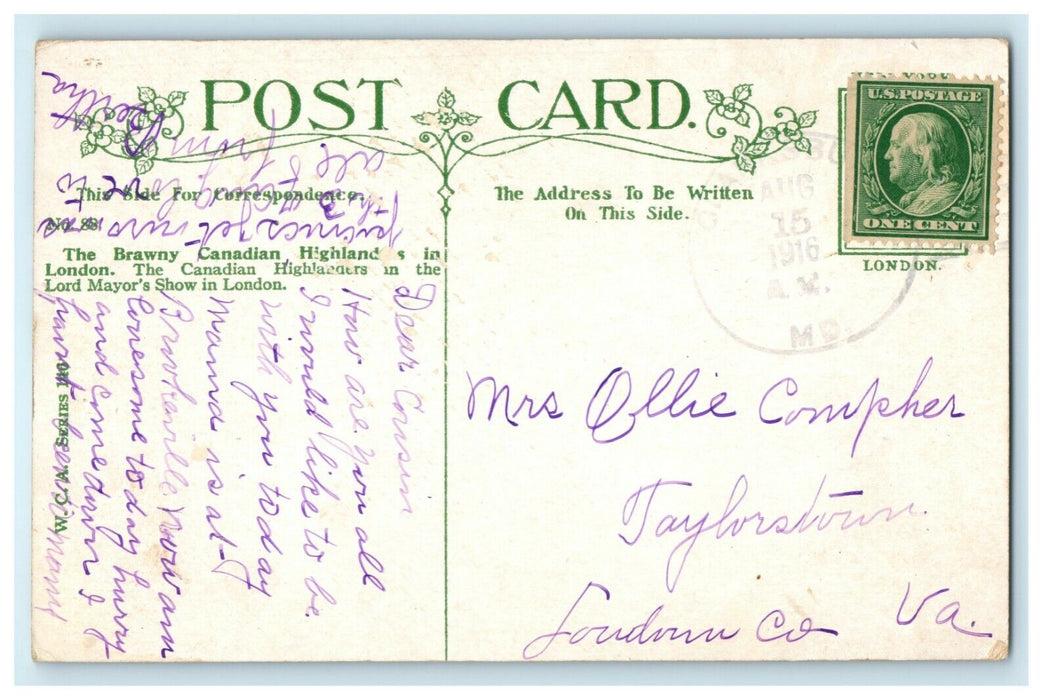 POST CARD.
This Side For Correspondence.
The Address To Be Written
On This Side.
No. 88.
The Brawny Canadian Highlanders in
London. The Canadian Highlanders in the
Lord Mayor's Show in London.
W. C. A. SERIES
U.S. POSTAGE
ONE CENT
LONDON.
AUG
15
1916
A.M.
MD.
Mrs Ollie Compher
Taylorstown
Loudoun Co Va.
Dear Cousin
How are you all
I would like to be
with you today
Mama is at
Brownsville. Now am
lonesome today hurry
and come down I
havent seen many
love to
all from
Bertha